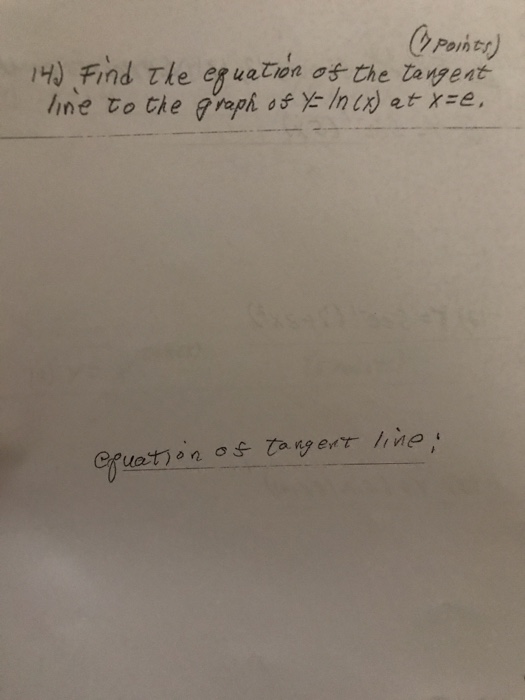 (7 Points)
14) Find The equation of the tangent
line to the graph of Y=ln(x) at x=e.
equation of tangent line: